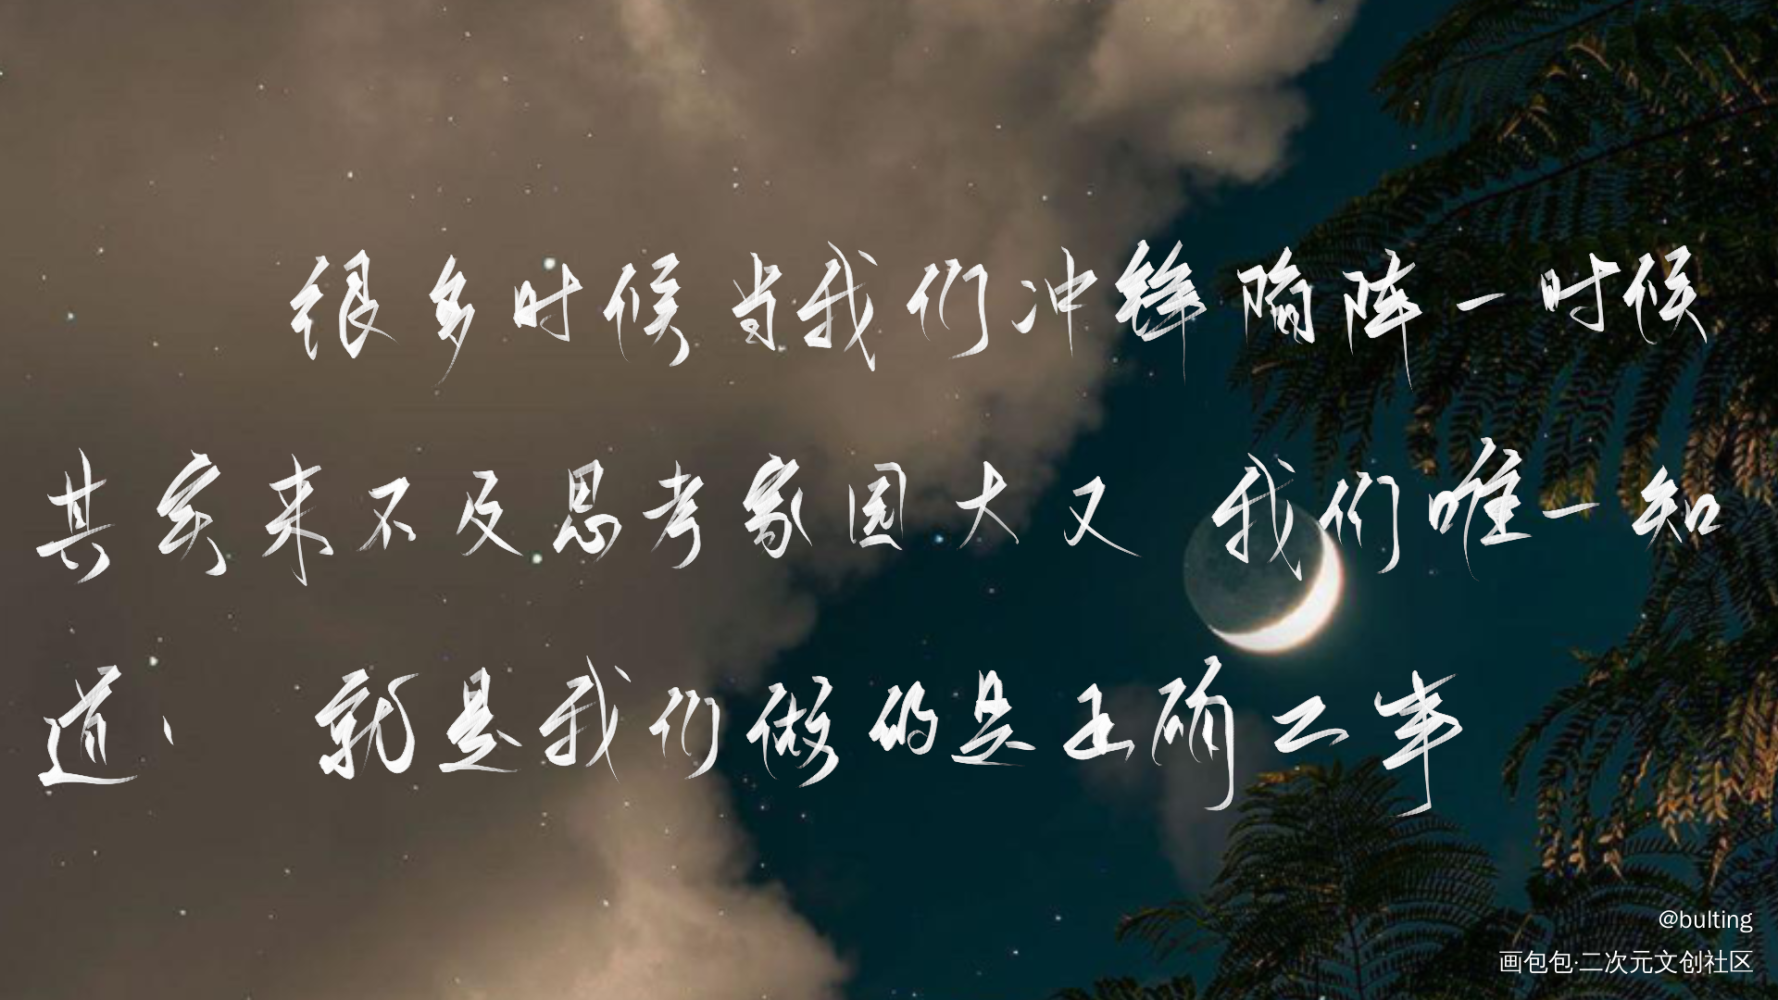 很多时候当我们冲锋陷阵一时候
其实来不及思考家园大义 我们唯一知
道、 就是我们做的是正确之事
@bulting
画包包·二次元文创社区